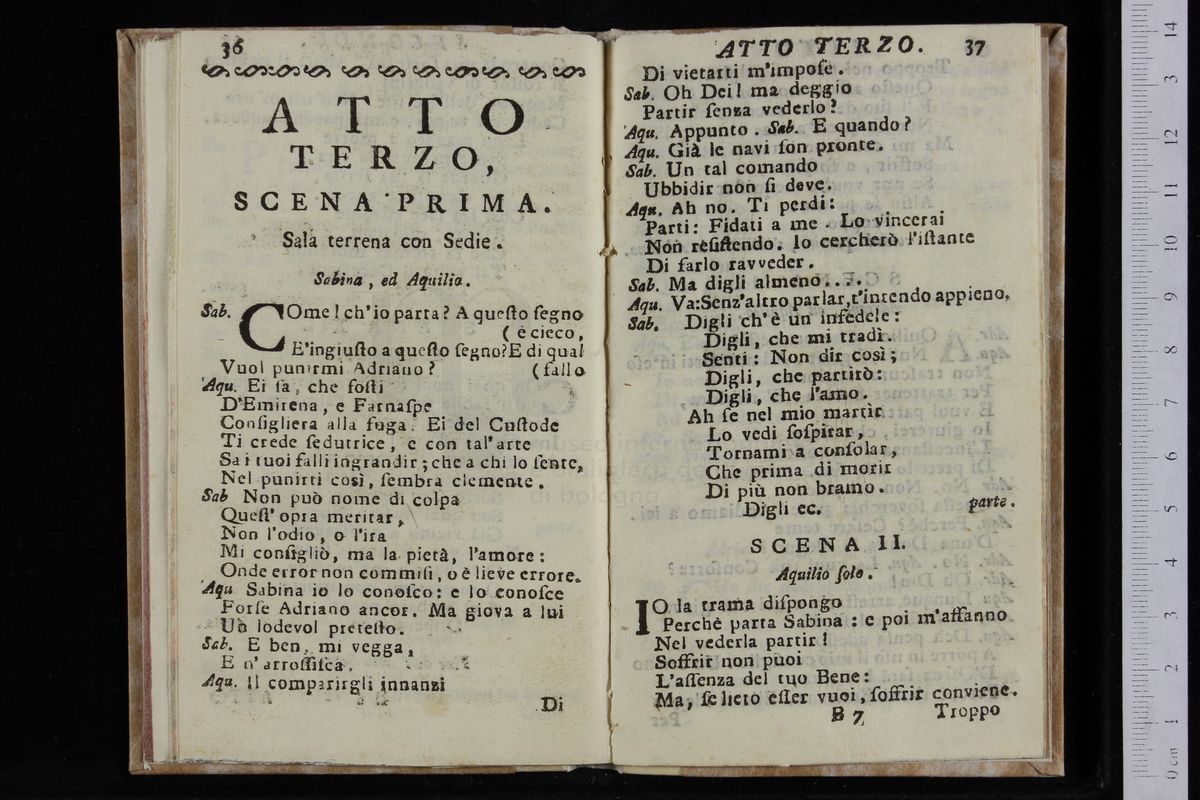 36
ATTO
TERZO,
SCENA PRIMA.
Sala terrena con Sedie.
Sabina, ed Aquilia.
Sab. COme! ch'io parta? A queſto ſegno
( è cieco,
E'ingiuſto a queſto ſegno? E di qual
Vuol punirmi Adriano? (fallo
Aqu. Ei ſa, che foſti
D'Emirena, e Farnaſpe
Conſigliera alla fuga. Ei del Cuſtode
Ti crede ſedutrice, e con tal'arte
Sa i tuoi falli ingrandir; che a chi lo ſente,
Nel punirti così, ſembra clemente.
Sab Non può nome di colpa
Queſt'opra meritar,
Non l'odio, o l'ira
Mi conſigliò, ma la pietà, l'amore:
Onde error non commiſi, o è lieve errore.
Aqu Sabina io lo conoſco: e lo conoſce
Forſe Adriano ancor. Ma giova a lui
Un lodevol preteſto.
Sab. E ben, mi vegga,
E n'arroſſiſca.
Aqu. Il comparirgli innanzi
Di
ATTO TERZO. 37
Di vietarti m'impoſe.
Sab. Oh Dei! ma deggio
Partir ſenza vederlo?
Aqu. Appunto. Sab. E quando?
Aqu. Già le navi ſon pronte.
Sab. Un tal comando
Ubbidir non ſi deve.
Aqu. Ah no. Ti perdi:
Parti: Fidati a me. Lo vincerai
Non reſiſtendo. Io cercherò l'iſtante
Di farlo ravveder.
Sab. Ma digli almeno....
Aqu. Va: Senz'altro parlar, t'intendo appieno.
Sab. Digli ch'è un infedele:
Digli, che mi tradì.
Senti: Non dir così;
Digli, che partirò:
Digli, che l'amo.
Ah ſe nel mio martìr
Lo vedi ſoſpirar,
Tornami a conſolar,
Che prima di morir
Di più non bramo.
Digli ec. parte.
SCENA II.
Aquilio ſolo.
IO la trama diſpongo
Perchè parta Sabina: e poi m'affanno
Nel vederla partir!
Soffrir non puoi
L'aſſenza del tuo Bene:
Ma, ſe lieto eſſer vuoi, ſoffrir conviene.
B 7 Troppo